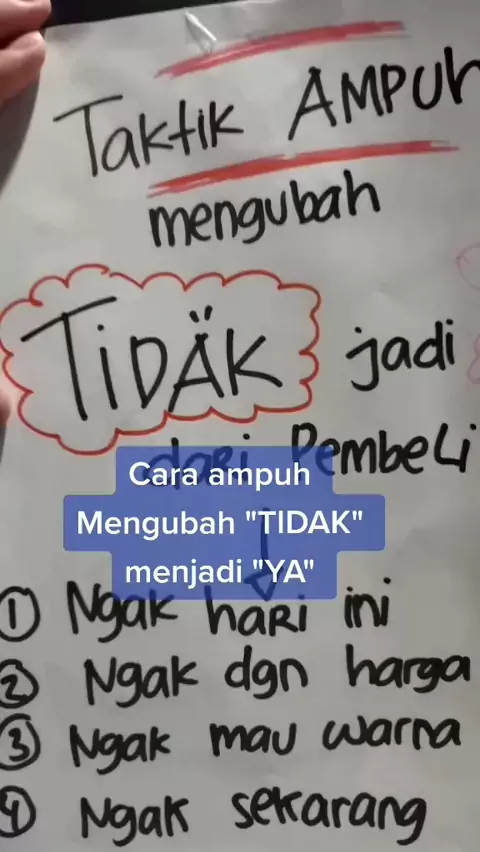 Taktik AMPUh
mengubah
TiDAK jadi
dari Pembeli
Cara ampuh
Mengubah "TIDAK"
menjadi "YA"
1 Ngak hari ini
2 Ngak dgn harga
3 Ngak mau warna
4 Ngak sekarang